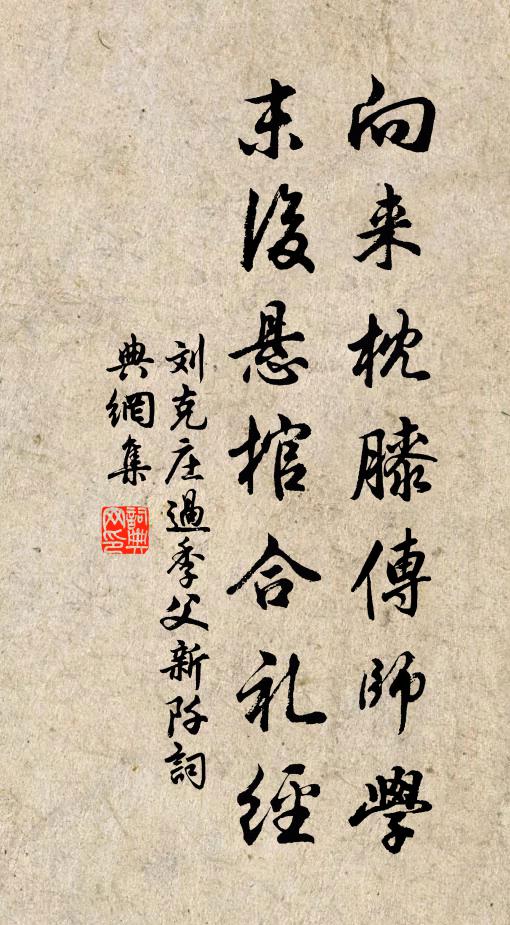 向来枕膝傳師學
末後悬棺合礼經
刘克庄過季父新阡詞
典網集
詞典网印